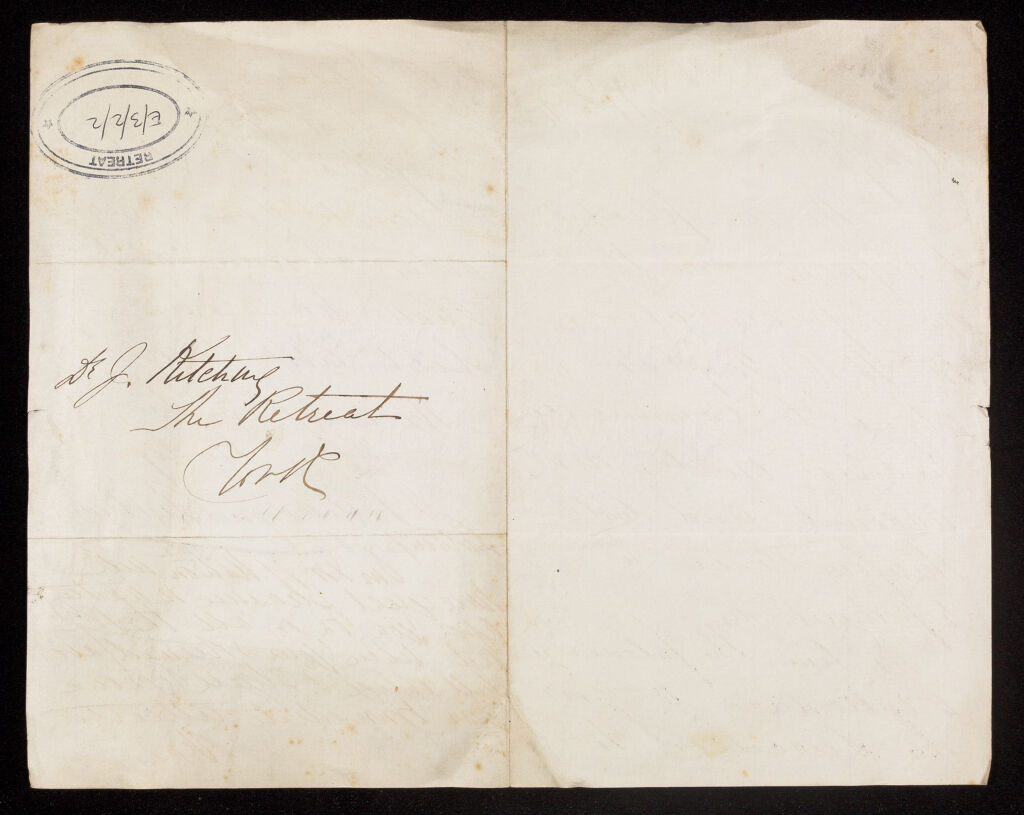 RETREAT
E/3/2/2
Dr J. Kitching
The Retreat
York